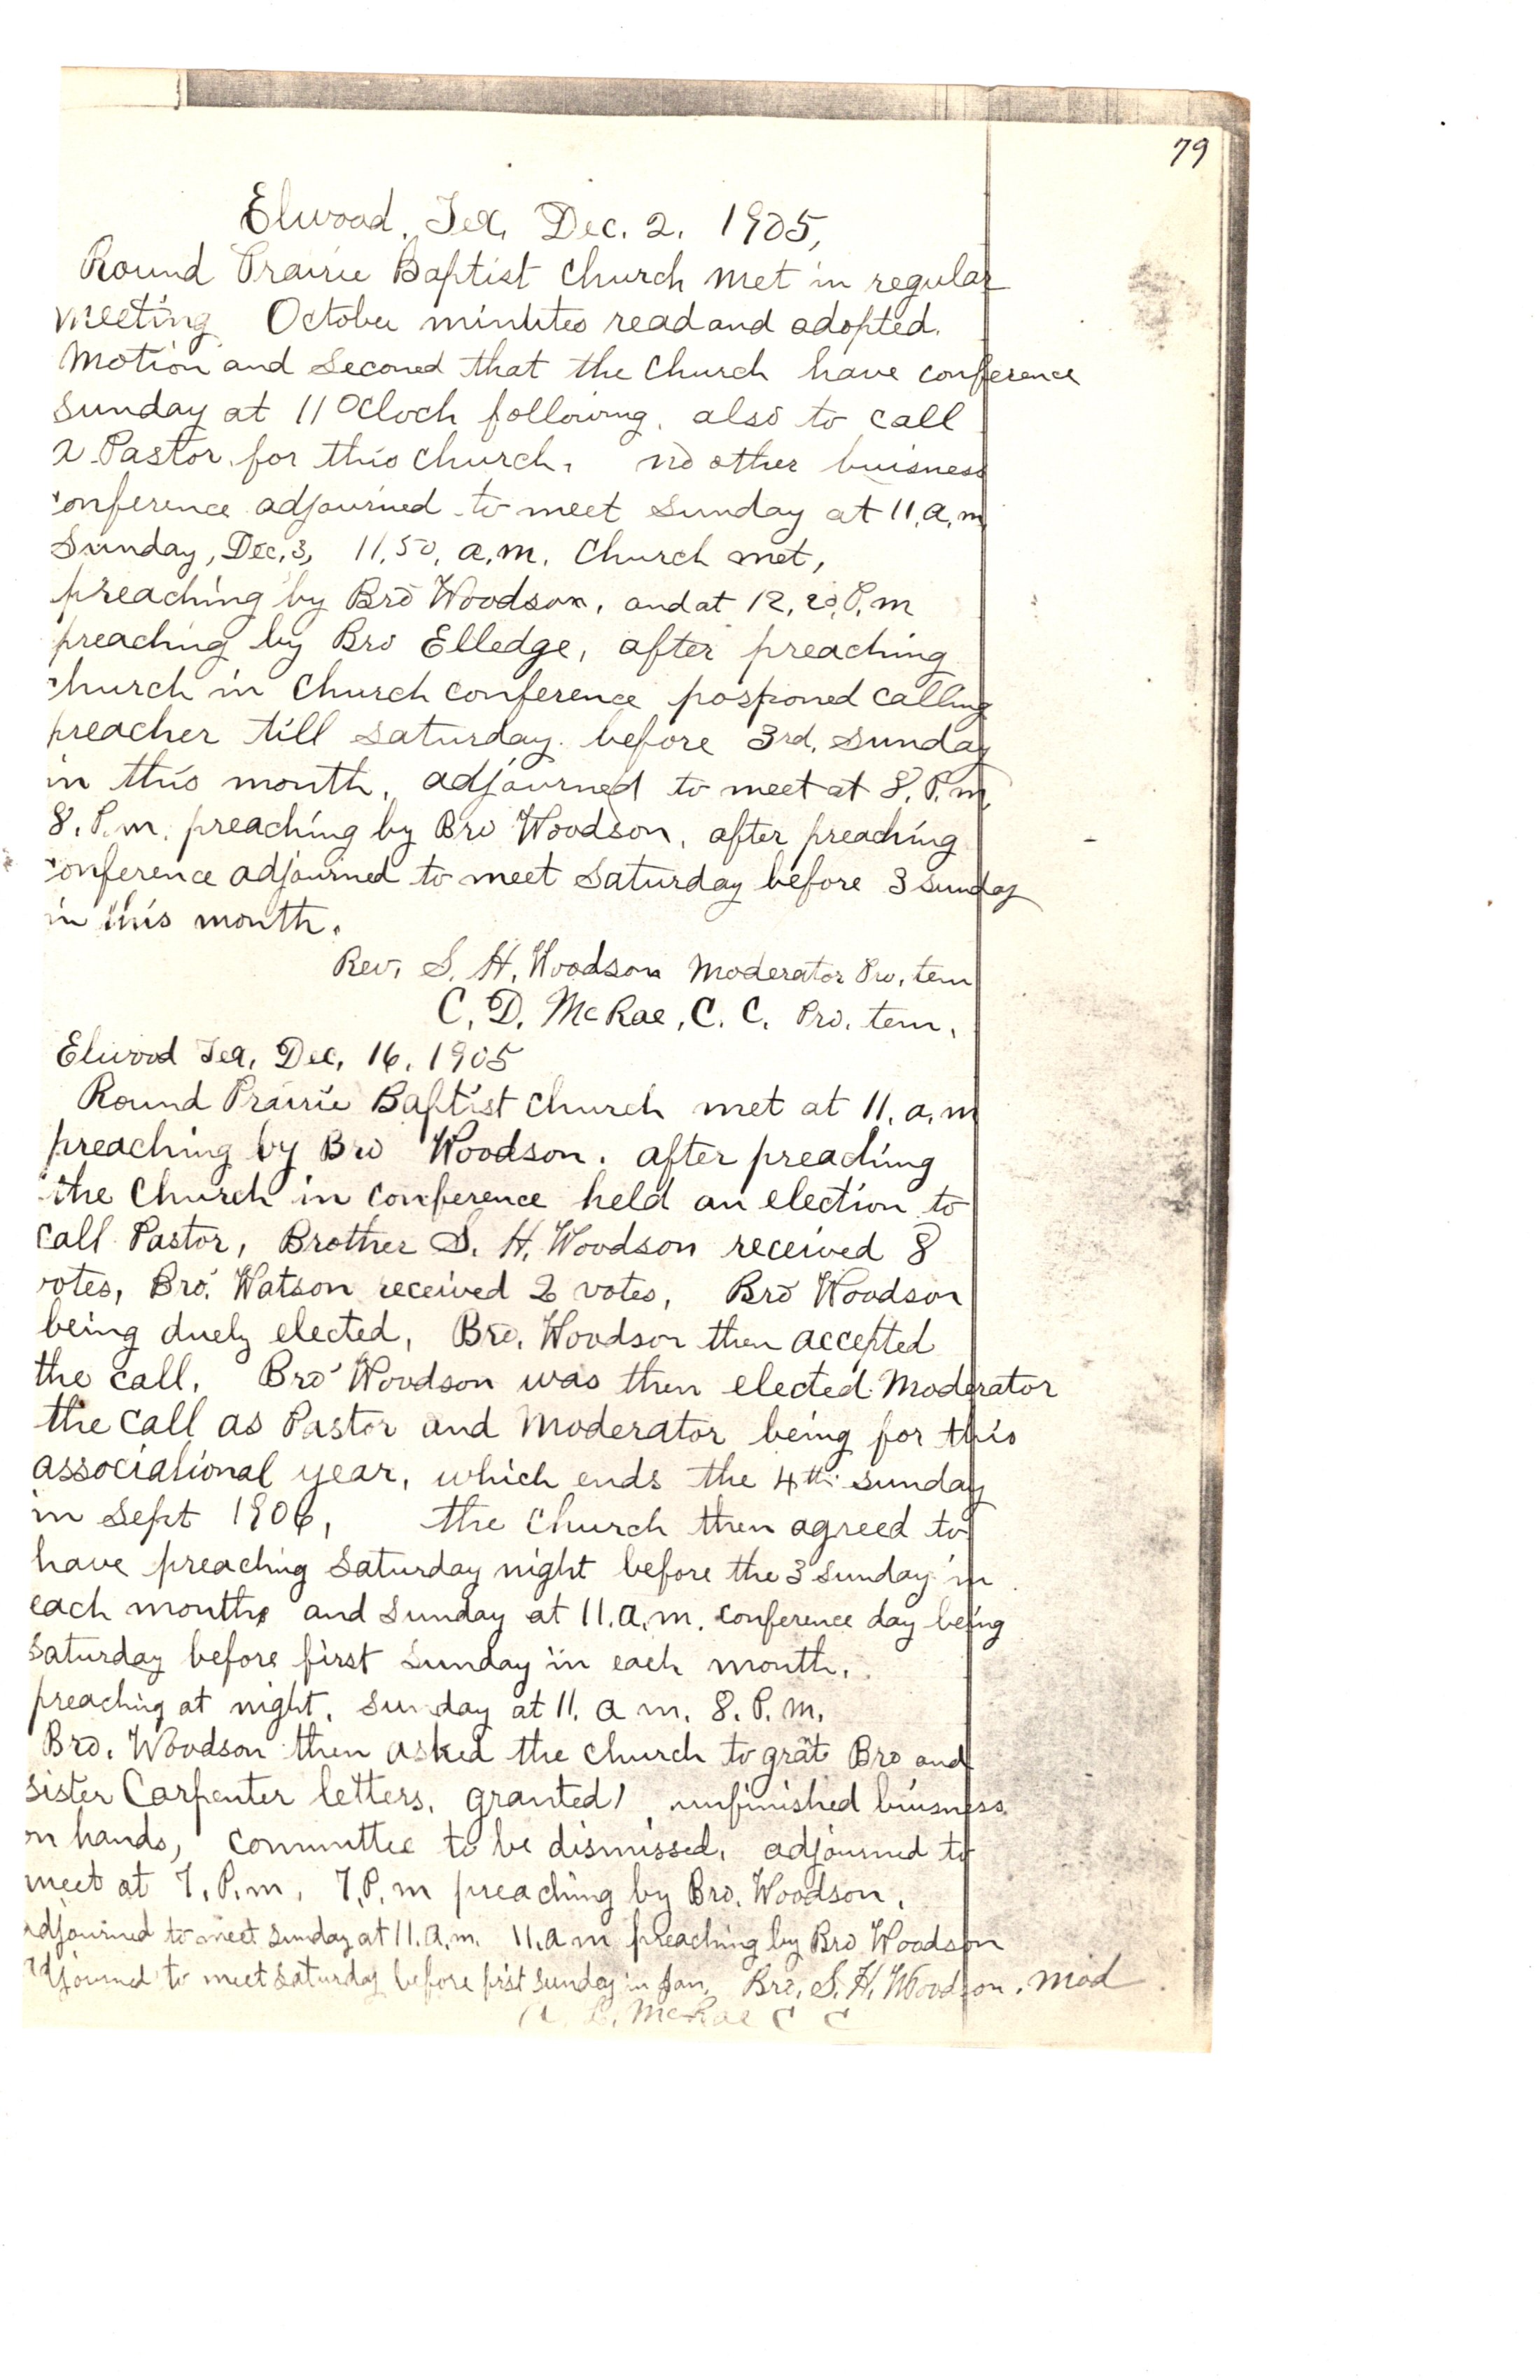 79
Elwood, Tex, Dec. 2. 1905,
Round Prairie Baptist Church met in regular
meeting October minutes read and adopted.
Motion and Seconed that the Church have conference
Sunday at 11 Ocloch following. also to call
a Pastor for this Church. no other buisness
conference adjourned to meet Sunday at 11, a, m
Sunday, Dec, 3, 11,50, a, m. Church met,
preaching by Bro Woodson, and at 12, 20, P, m
preaching by Bro Elledge, after preaching
church in Church conference posponed calling
preacher till Saturday before 3rd, Sunday
in this month, adjourned to meet at 8, P. m,
8. P. m. preaching by Bro Woodson, after preaching
conference adjourned to meet Saturday before 3 Sunday
in this month.
Rev, S. H. Woodson Moderator Pro, tem
C. D. McRae, C. C. Pro. tem,
Elwood Tex, Dec, 16, 1905
Round Prairie Baptist Church met at 11, a, m
preaching by Bro Woodson. after preaching
the Church in conference held an election to
call Pastor, Brother S. H. Woodson received 8
votes, Bro. Watson received 2 votes, Bro Woodson
being duely elected, Bro, Woodson then accepted
the call, Bro Woodson was then elected Moderator
the call as Pastor and Moderator being for this
associational year, which ends the 4th Sunday
in Sept 1906, the Church then agreed to
have preaching Saturday night before the 3 Sunday in
each month and Sunday at 11, a, m, conference day being
Saturday before first Sunday in each month,
preaching at night, Sunday at 11. a m. 8. P. M,
Bro. Woodson then asked the Church to grat Bro and
sister Carpenter letters, granted, unfinished buisness
on hands, committee to be dismissed, adjourned to
meet at 7, P, m, 7, P, m preaching by Bro. Woodson,
adjourned to meet Sunday at 11. a, m. 11, a m preaching by Bro Woodson
adjourned to meet Saturday before first Sunday in Jan, Bro, S. H. Woodson, Mod
McRae C C